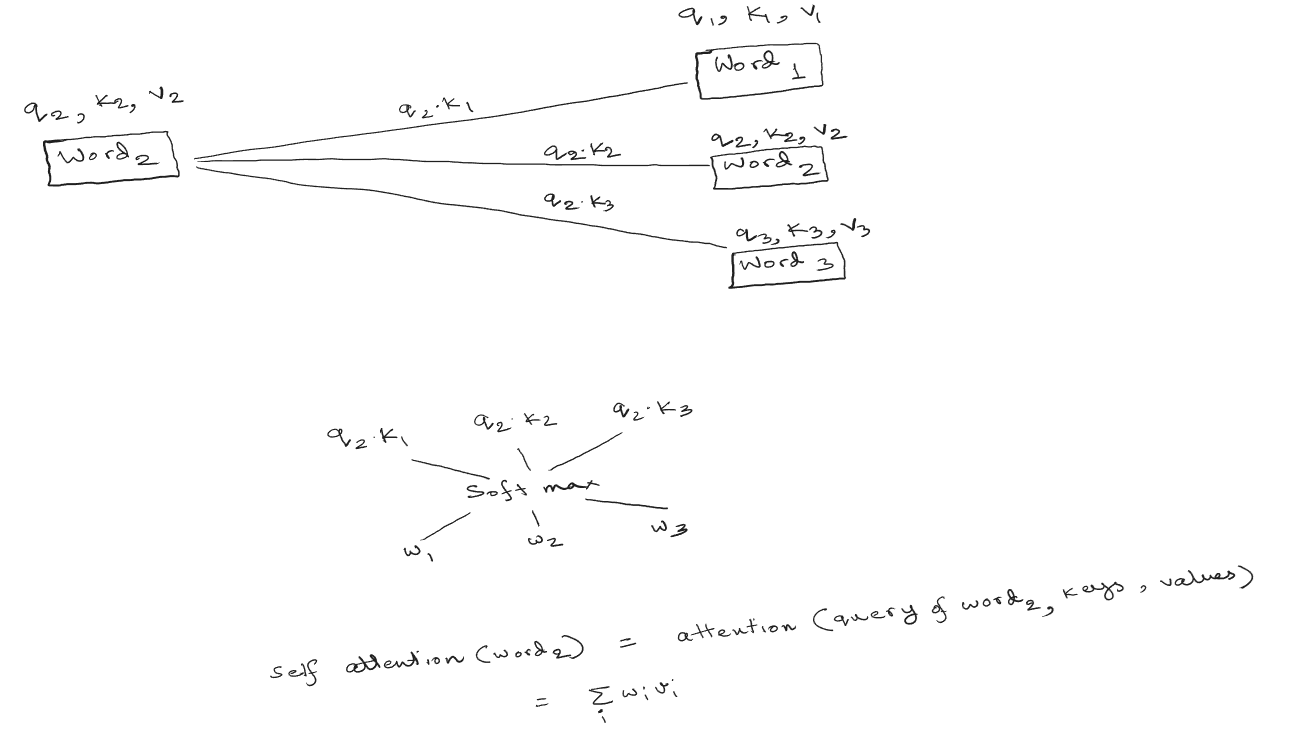 q1, K1, V1
Word 1
q2, K2, V2
Word 2
q2·K1
q2·K2
q2·K3
q2, K2, V2
Word 2
q3, K3, V3
Word 3
q2·K1 q2·K2 q2·K3
Soft max
w1 w2 w3
self attention (word2) = attention (query of word2, keys, values)
= ∑i wi vi